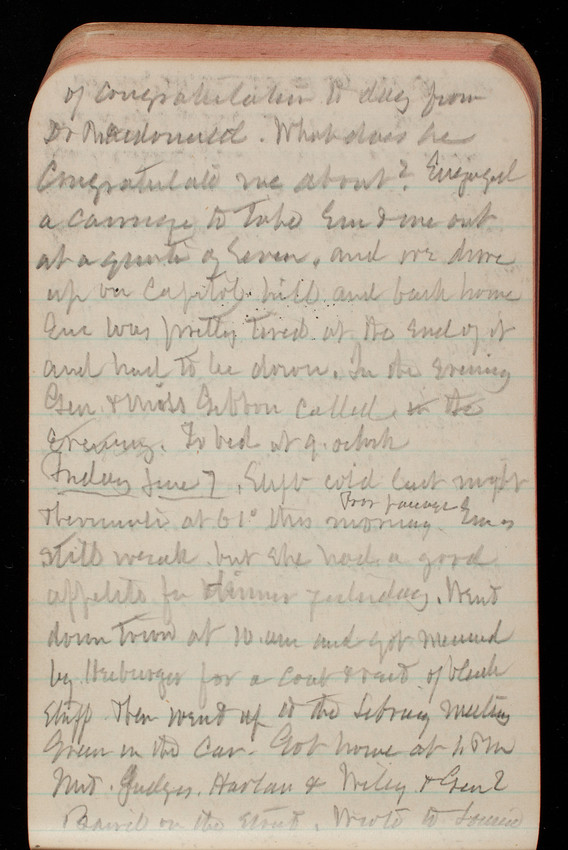 of congratulation to day from
Dr Macdonald. What does he
Congratulate me about? Engaged
a carriage to take Em & me out
at a quarter of seven, and we drove
up on Capitol hill and back home
Em was pretty tired at the end of it
and had to lie down. In the evening
Gen & Miss Gibbon called in the
Evening. To bed at 9. oclock
Friday June 7. Slept cold last night
Thermometer at 61° this morning. Em is
still weak but she had a good
appetite for dinner yesterday. Went
down town at 10 am and got measured
by for a coat & vest of black
stuff. Then went up to the Library meeting
Green in the Car. Got home at
Met Judges Harlan & Wiley & Genl
Baird on the street. Wrote to